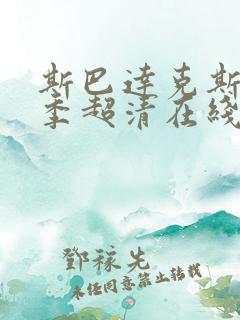 斯巴達克斯
季超清在綫
鄧稼先
未经同意禁止转载